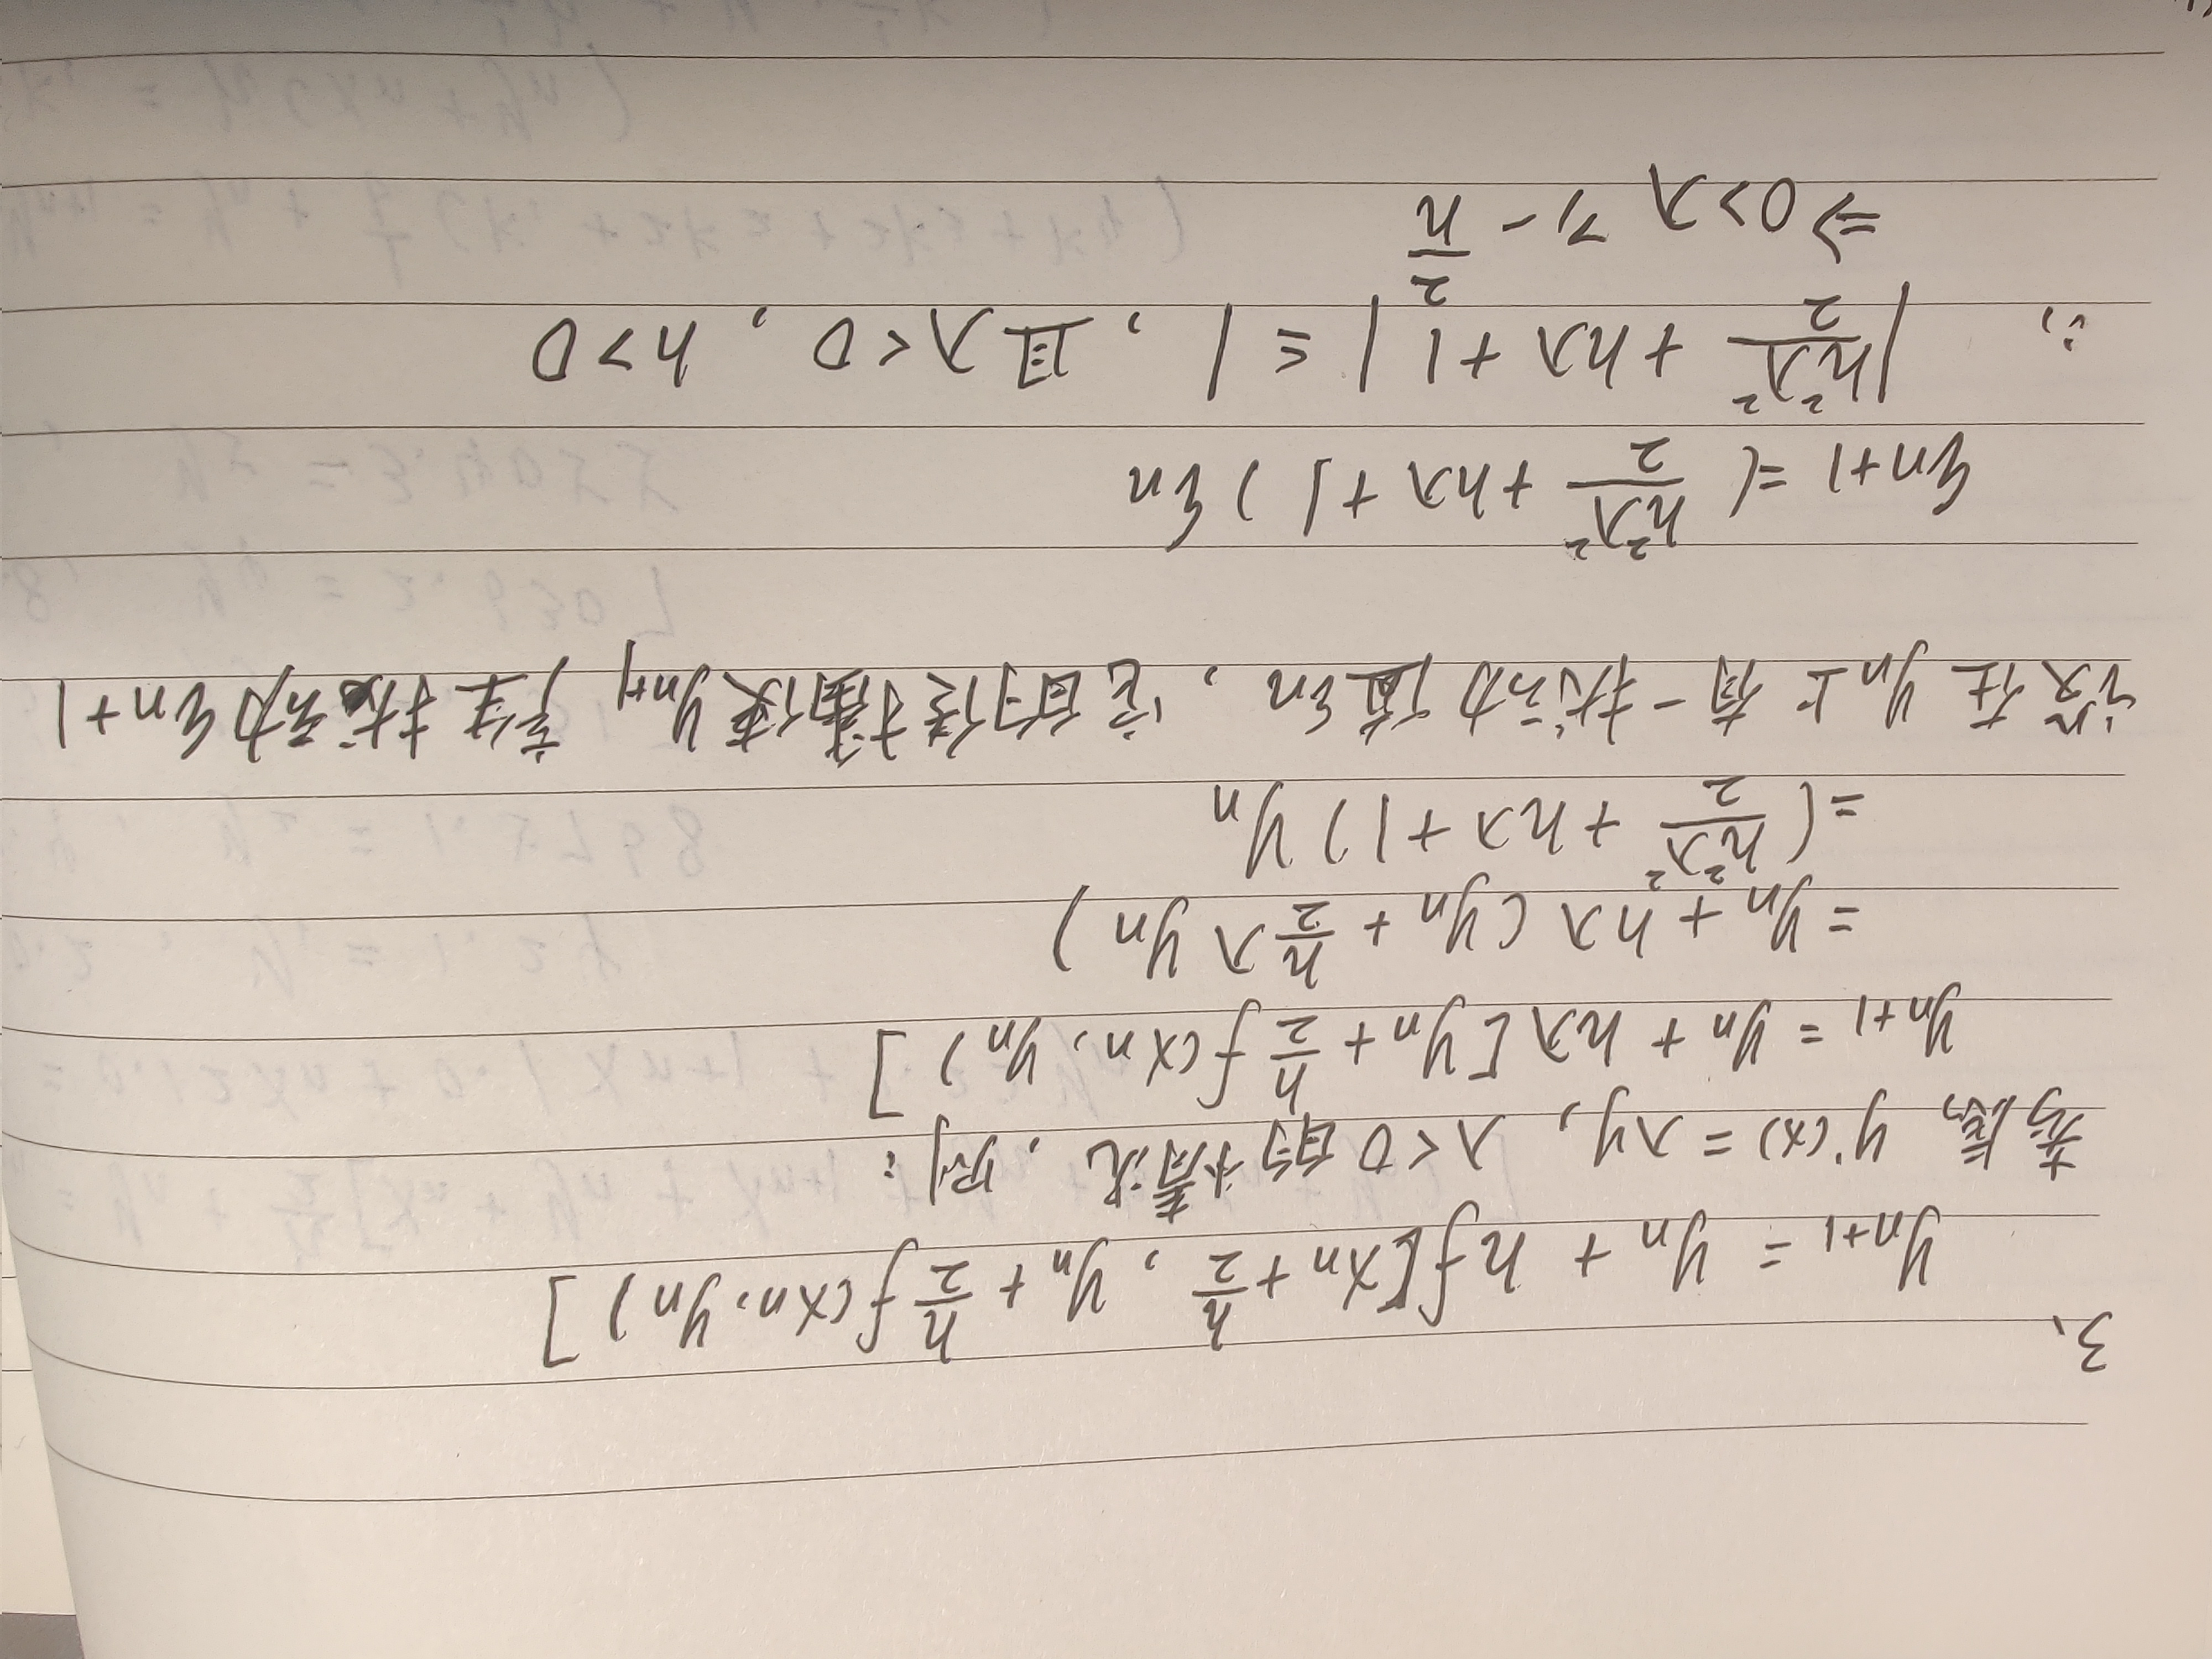 3、
yₙ₊₁ = yₙ + h f[xₙ + h/2 , yₙ + h/2 f(xₙ, yₙ) ]
考虑 y'(x) = λy, λ<0 的情况，则：
yₙ₊₁ = yₙ + hλ [yₙ + h/2 f(xₙ, yₙ) ]
= yₙ + hλ (yₙ + h/2 λ yₙ )
= ( h²λ²/2 + hλ + 1 ) yₙ
设在 yₙ上有一扰动值εₙ，它的传播使yₙ₊₁产生扰动εₙ₊₁
εₙ₊₁ = ( h²λ²/2 + hλ + 1 ) εₙ
∴ | h²λ²/2 + hλ + 1 | ≤ 1 , 且λ<0 , h>0
⇒ 0 > λ ⩾ - 2/h